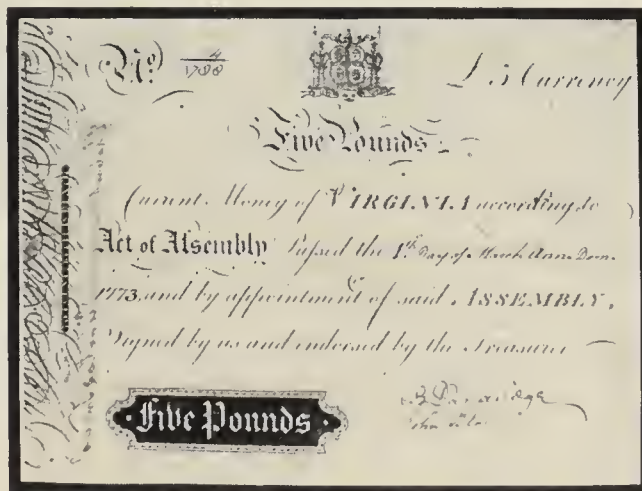 No. 4
1788
£ 5 Currency
Five Pounds
Current Money of VIRGINIA according to
Act of Assembly Passed the 1st. Day of March Anno. Dom.
1773, and by appointment of said ASSEMBLY,
Signed by us and endorsed by the Treasurer
Five Pounds